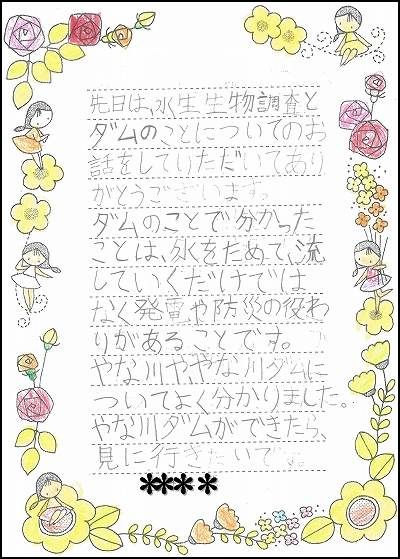 先日は、水生生物調査と
ダムのことについてのお
話をしていただいてあり
がとうございます。
ダムのことで分かった
ことは、水をためて、流
していくだけでは
なく発電や防災の役わ
りがあることです。
やな川や、やな川ダムに
ついてよく分かりました。
やな川ダムができたら、
見に行きたいです。